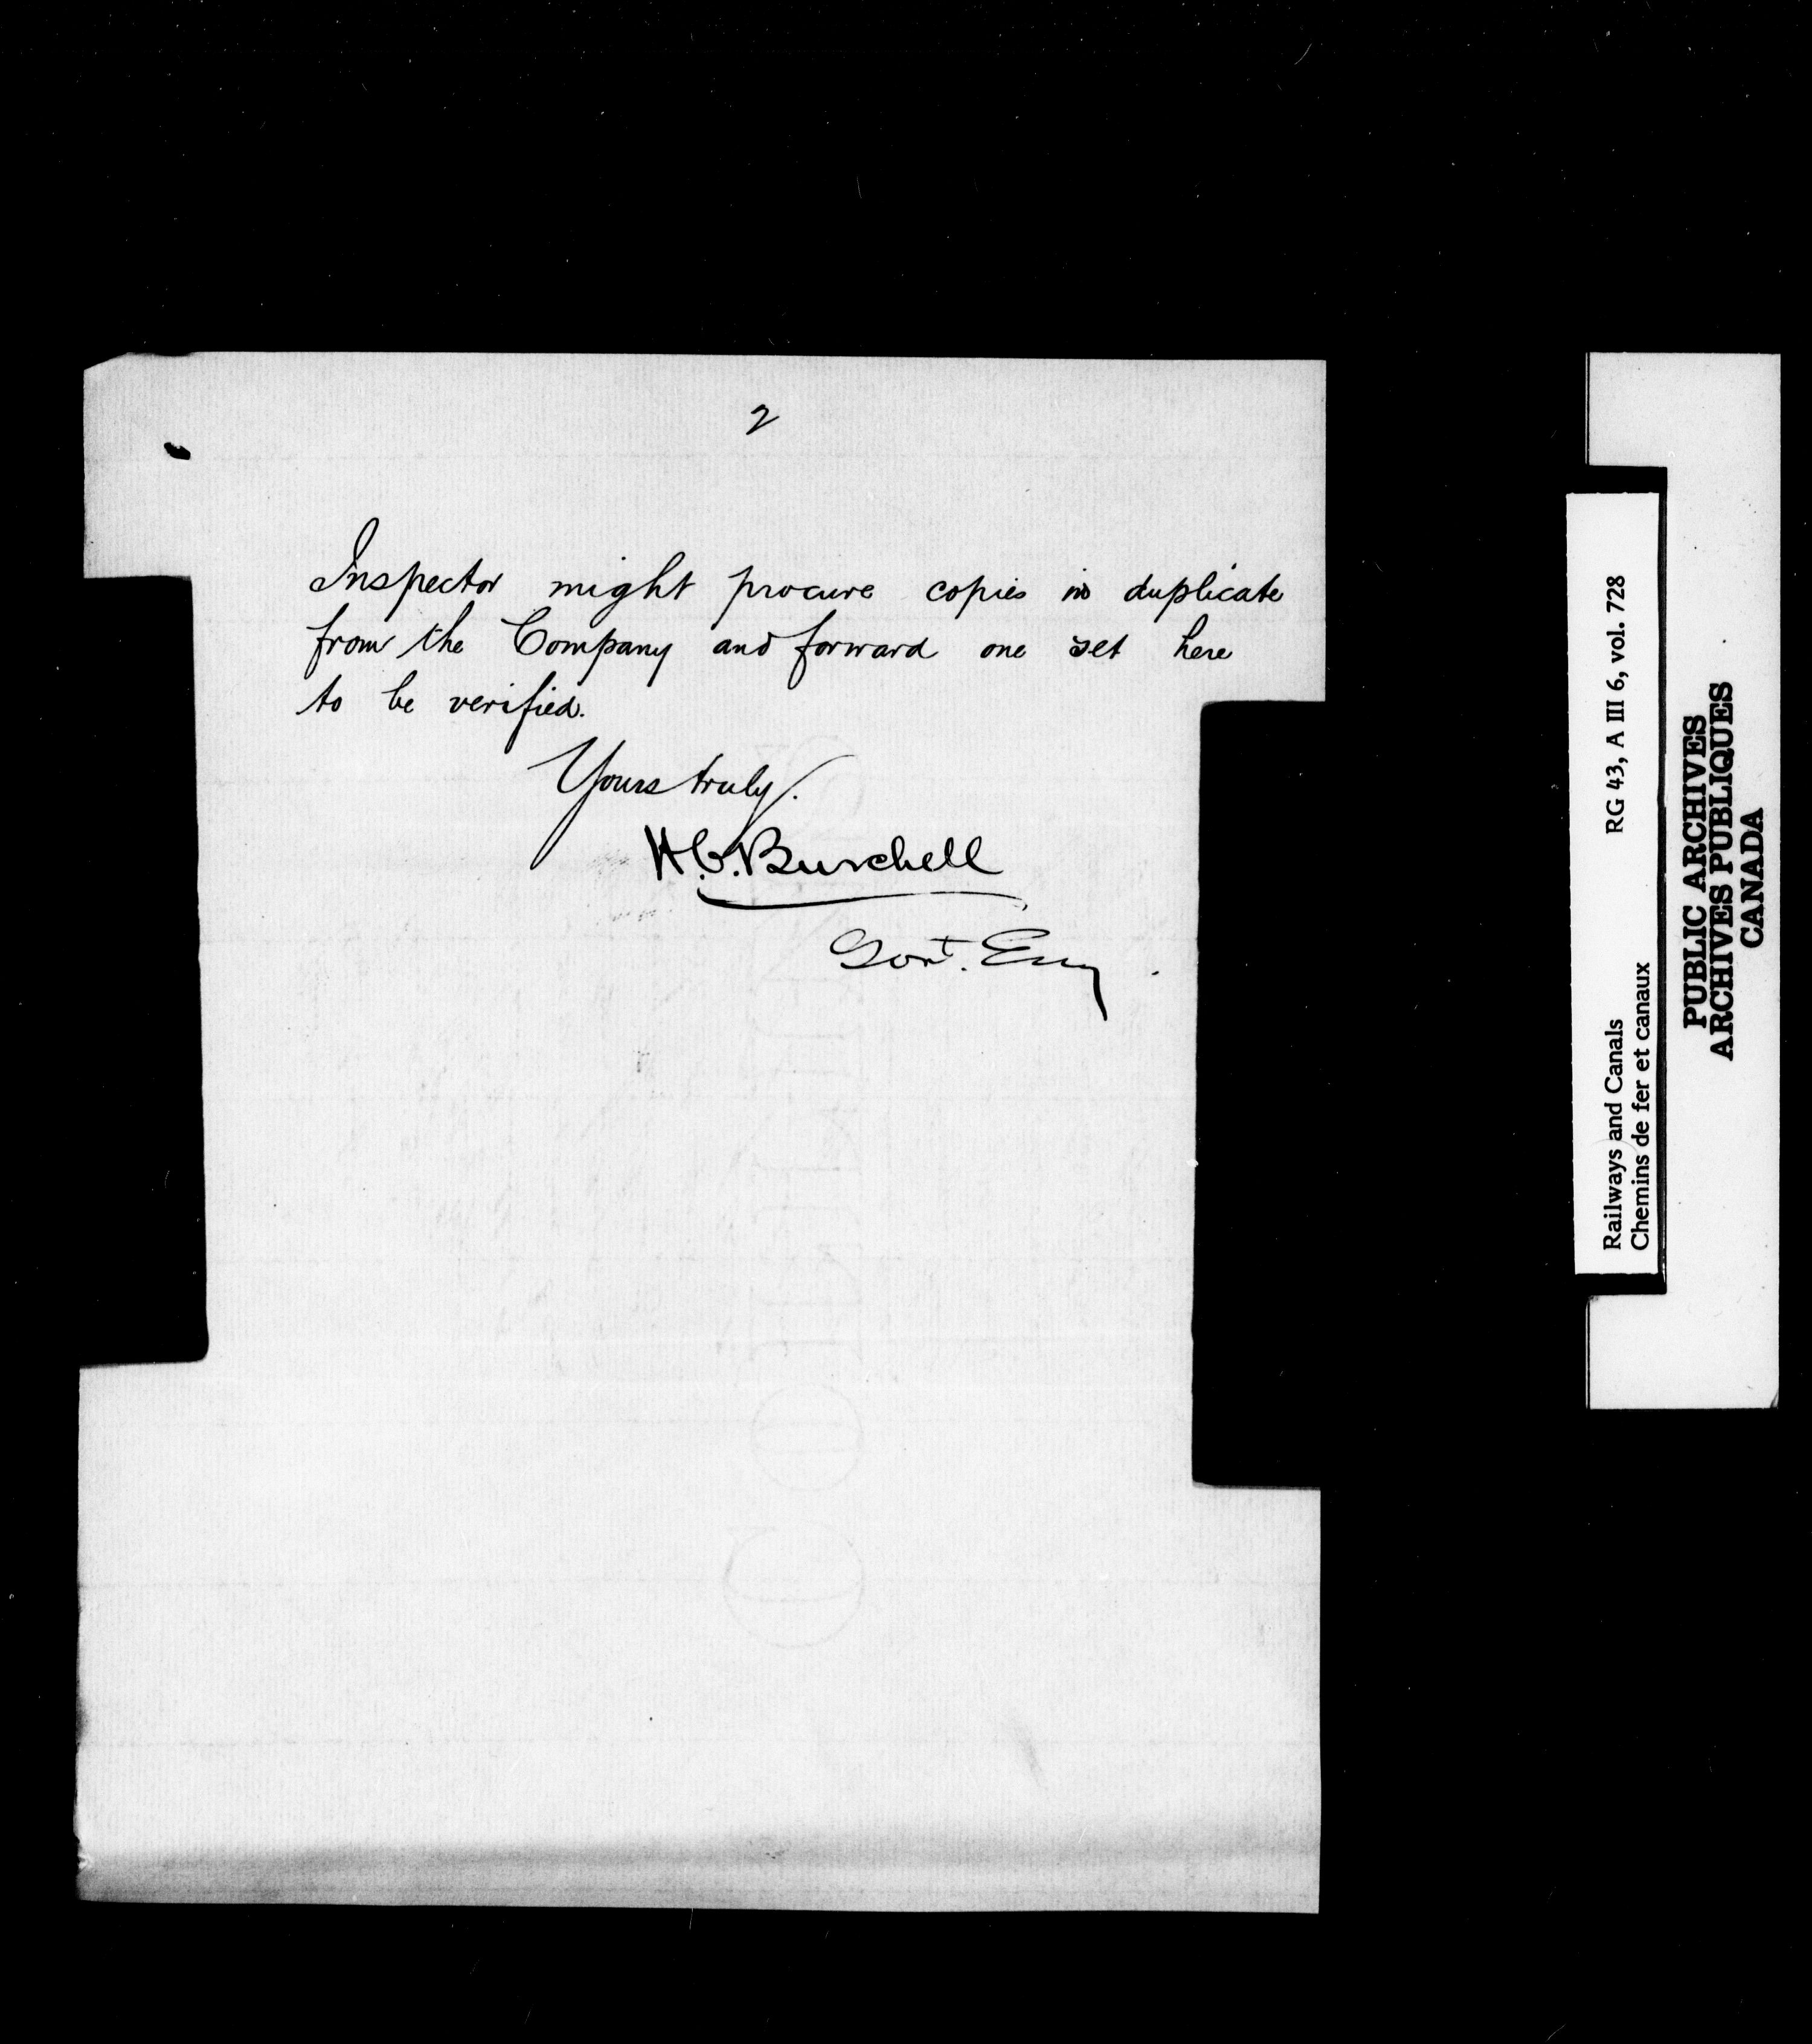 2
Inspector might procure copies in duplicate
from the Company and forward one set here
to be verified.
Yours truly.
H.C. Burchell
Govt. Eng.
Railways and Canals RG 43, A III 6, vol. 728
Chemins de fer et canaux
PUBLIC ARCHIVES
ARCHIVES PUBLIQUES
CANADA